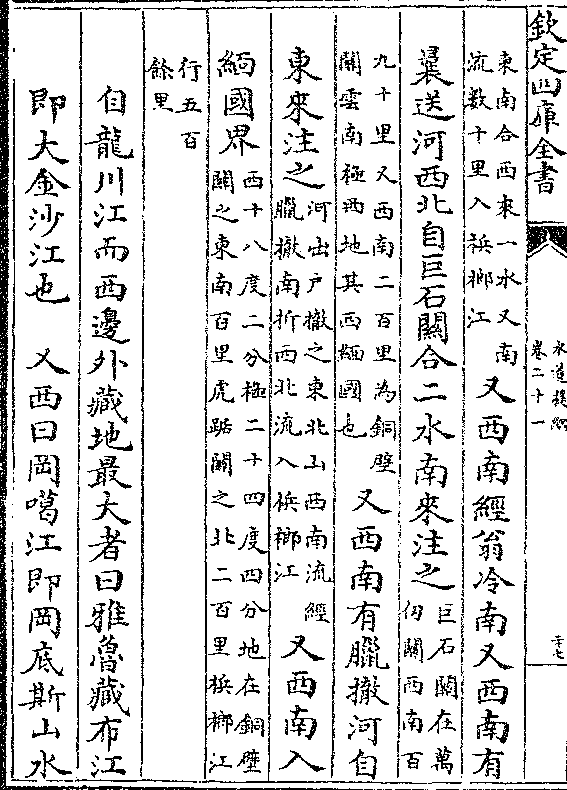 欽定四庫全書
水道提綱
卷二十一
東南合西來一水又南
流數十里入梹榔江
又西南經翁冷南又西南有
曩送河西北自巨石關合二水南來注之
巨石關在萬
仞關西南百
九十里又西南二百里為銅壁
關雲南極西地其西緬國也
又西南有臘撤河自
東來注之
河出户撤之東北山西南流經
臘撤南折西北流入梹榔江
又西南入
緬國界
西十八度二分極二十四度四分地在銅壁
關之東南百里虎踞關之北二百里梹榔江
行五百
餘里
自龍川江而西邊外藏地最大者曰雅魯藏布江
即大金沙江也　又西曰岡噶江即岡底斯山水